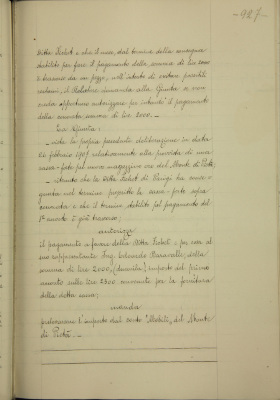 -927-
Ditta Pichot e che il mese, dal termine della consegna
stabilito per fare il pagamento della somma di lire 2000
è trascorso da un pezzo, nell'intento di evitare possibili
reclami, il Relatore domanda alla Giunta se non
creda opportuno autorizzare fin d'intanto il pagamento
della suddetta somma di lire 2000. -
La Giunta;
- vista la propria precedente deliberazione in data
febbraio relativamente alla fornitura di una
cassa-forte pel nuovo magazzino ori del Monte di Pietà;
- ritenuto che la Ditta Pichot di Parigi ha conse-
gnata nel termine prefitto la cassa-forte sopra
nominata e che il termine stabilito pel pagamento del
1° acconto è già trascorso;
autorizza
il pagamento a favore della Ditta Pichot e per essa al
suo rappresentante Ing. Edoardo della
somma di lire 2000, (duemila) importo del primo
acconto sulle lire convenute per la fornitura
della detta cassa;
manda
prelevarsene l'importo dal conto "Mobili" del Monte
di Pietà. -